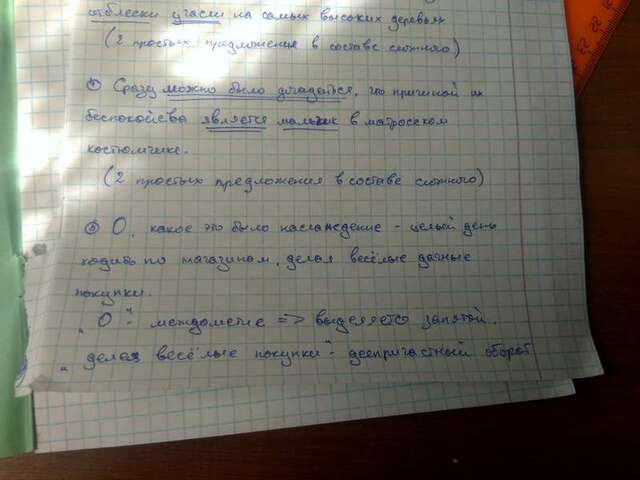 отблески угасли на самых высоких деревьях
(2 простых предложения в составе сложного)
④ Сразу можно было догадаться, что причиной их
беспокойства является мальчик в матросском
костюмчике.
(2 простых предложения в составе сложного)
⑤ О, какое это было наслаждение - целый день
ходить по магазинам, делая весёлые дачные
покупки.
„О" - междометие => выделяется запятой.
„делая весёлые покупки" - деепричастный оборот